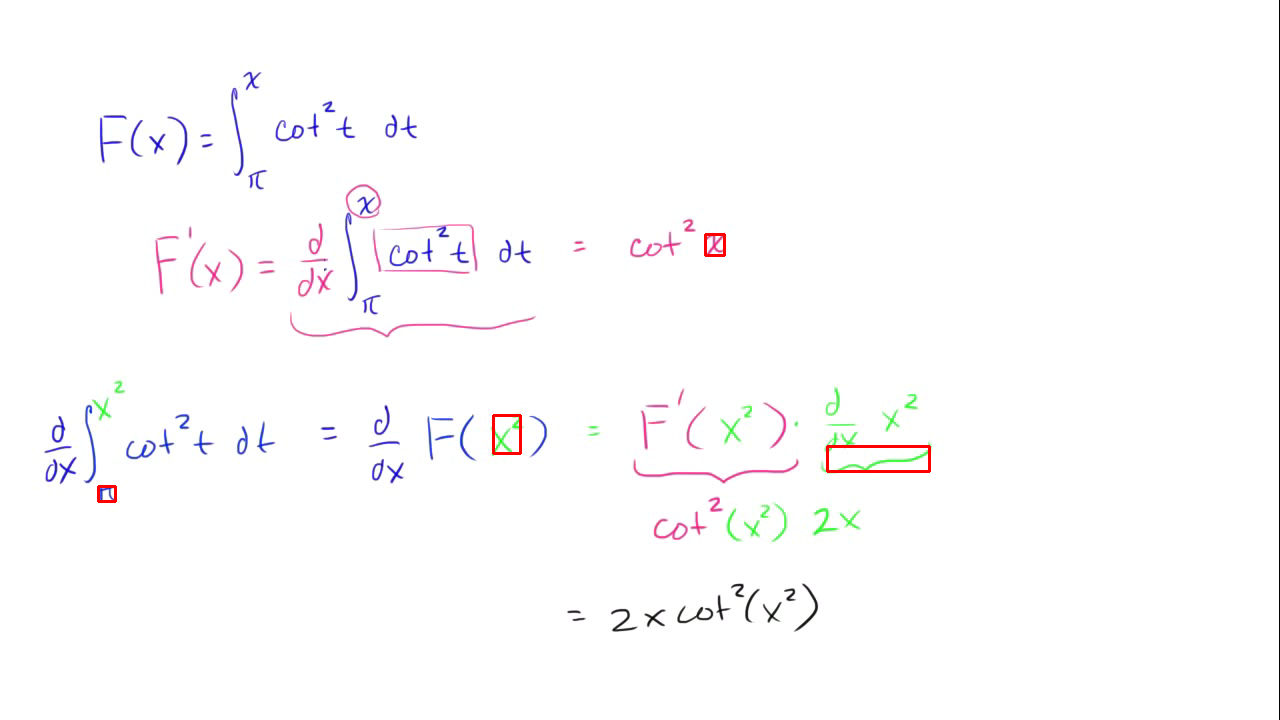 F(x) = ∫_π^x cot²t dt
F'(x) = d/dx ∫_π^x cot²t dt = cot² x
d/dx ∫_π^x² cot²t dt = d/dx F(x²) = F'(x²) · d/dx x²
cot²(x²) 2x
= 2x cot²(x²)